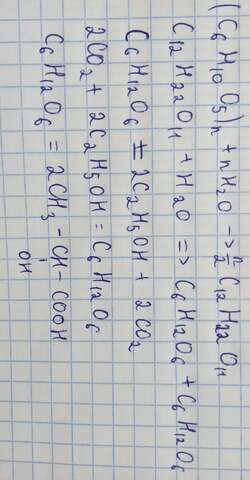 (C6H10O5)n + nH2O -> n/2 C12H22O11
C12H22O11 + H2O => C6H12O6 + C6H12O6
C6H12O6 ± 2C2H5OH + 2CO2
2CO2 + 2C2H5OH = C6H12O6
C6H12O6 = 2CH3 - CH - COOH
OH